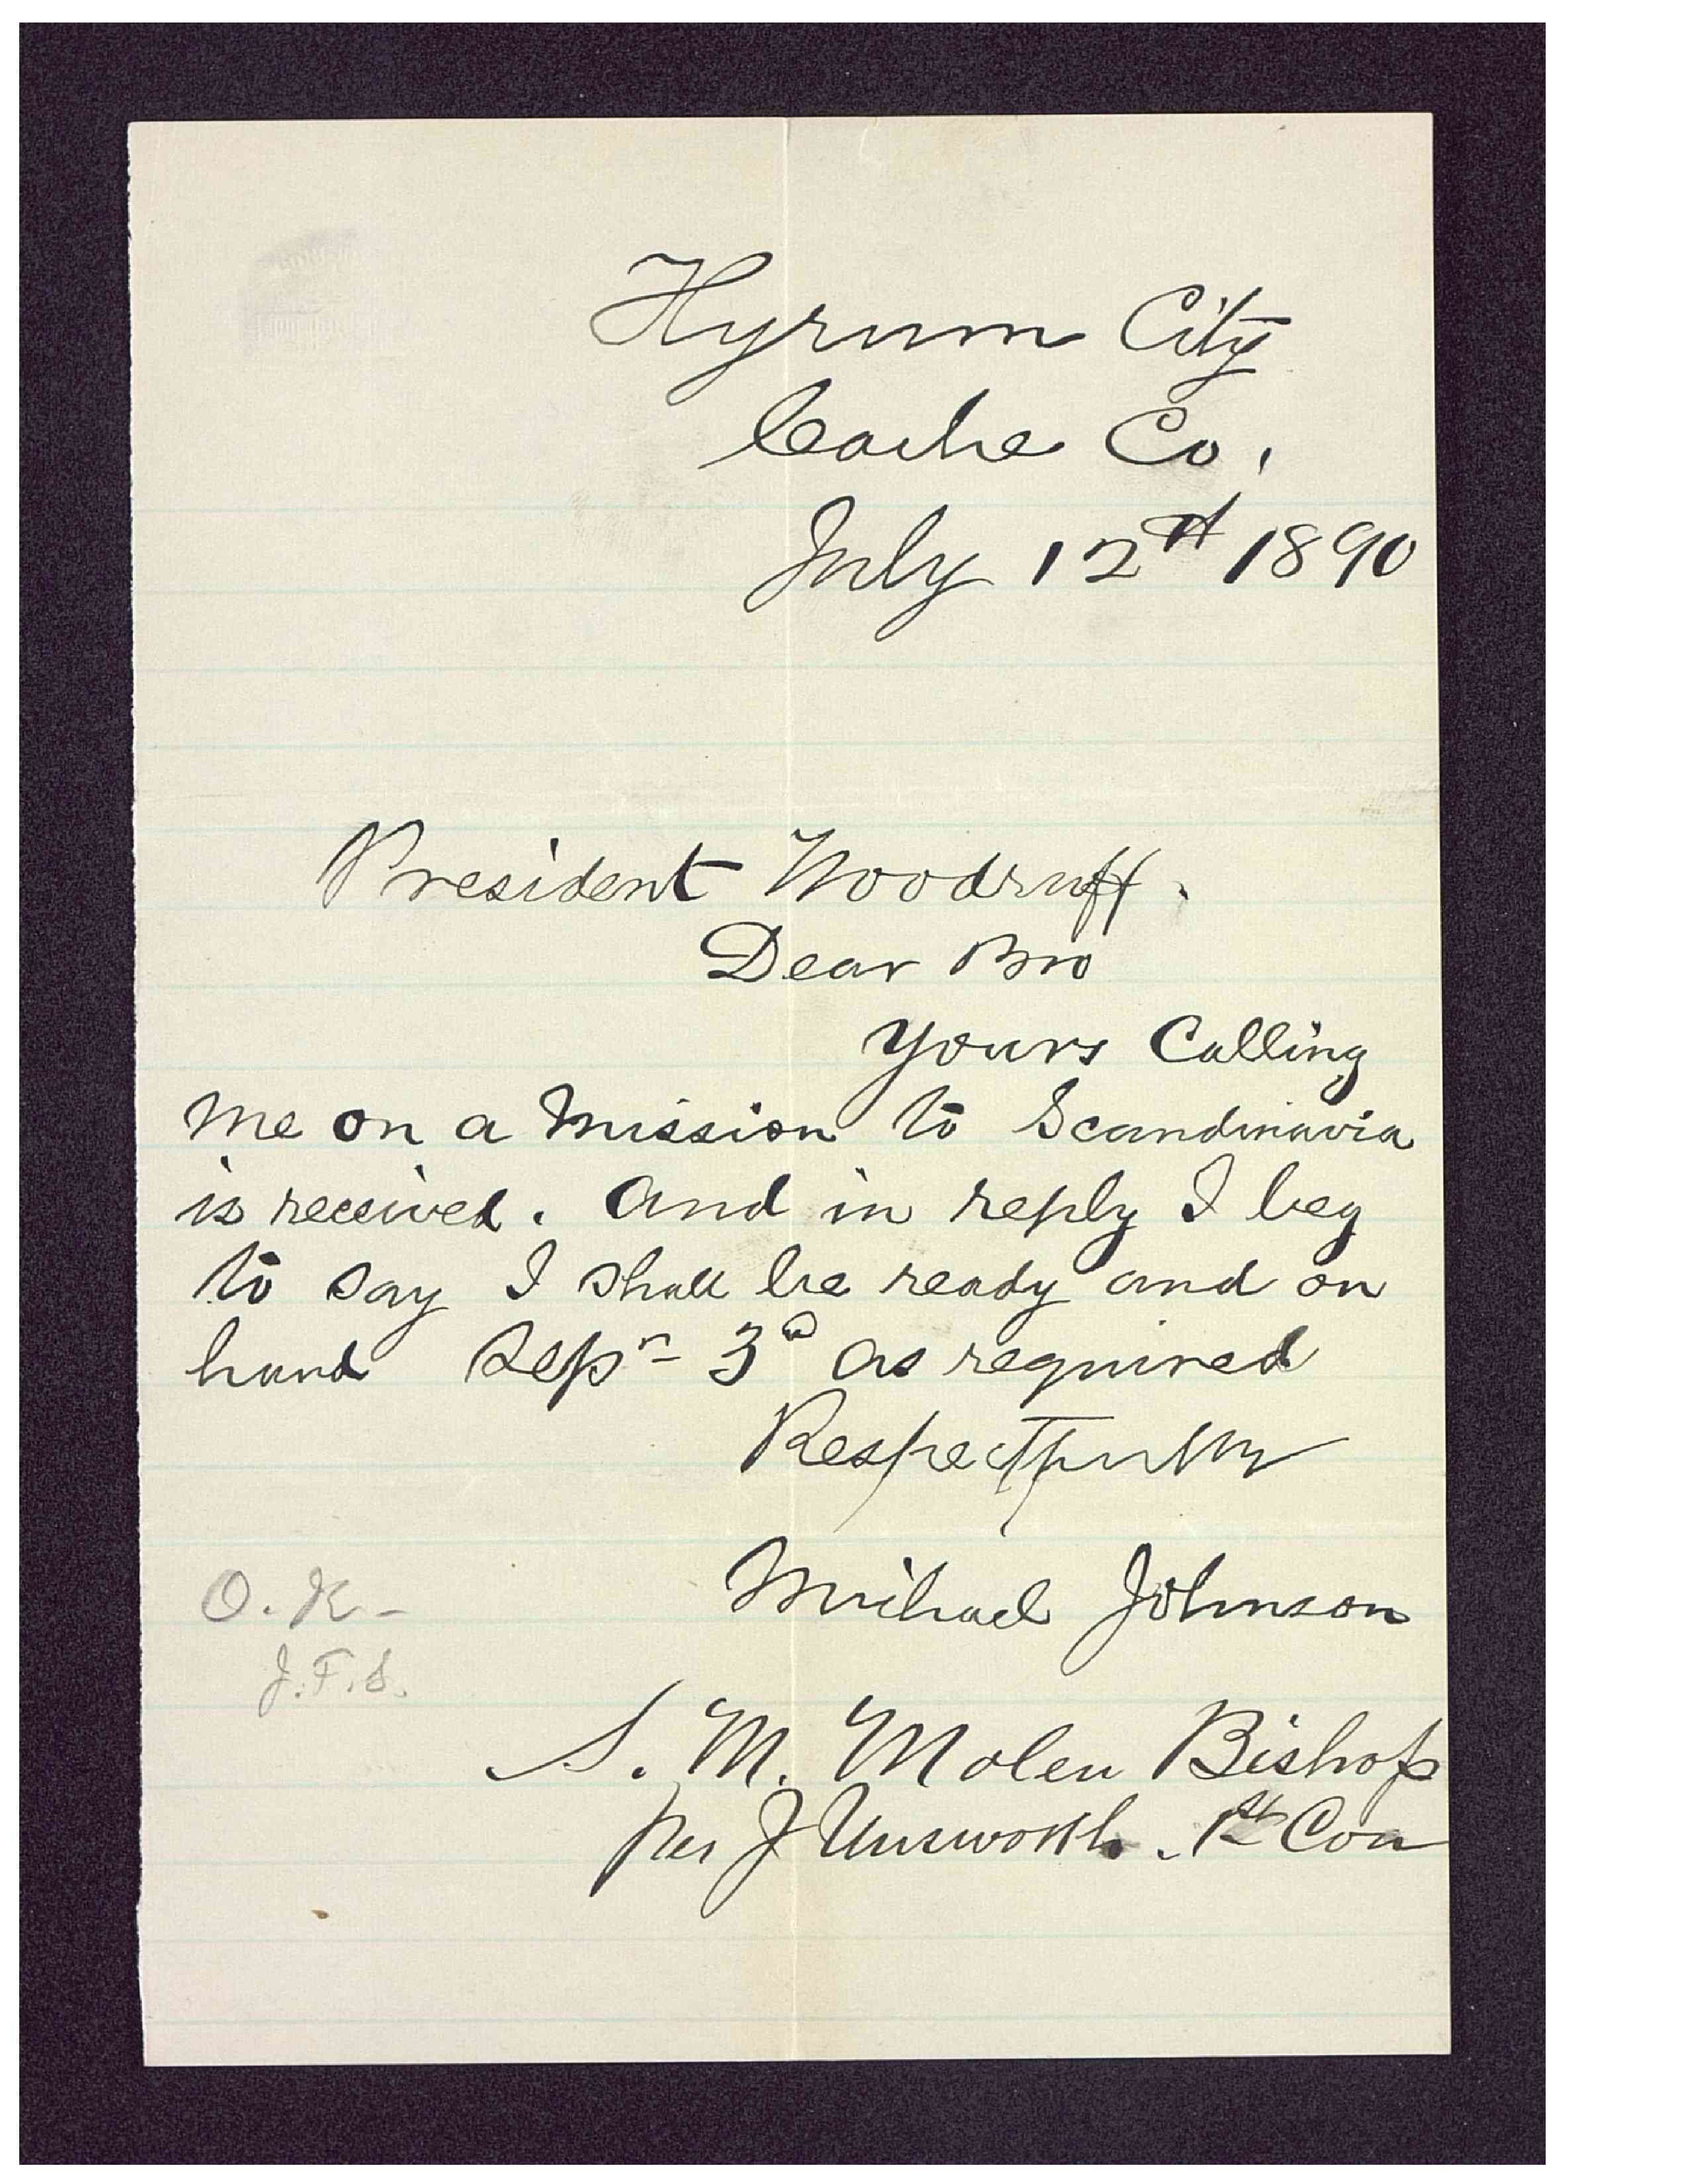 Hyrum City
Cache Co.
July 12th 1890
President Woodruff.
Dear Bro
Yours Calling
me on a Mission to Scandinavia
is received. And in reply I beg
to say I shall be ready and on
hand Sepr 3d as required
Respectfully
Michael Johnson
O.K-
J.F.S.
S. M. Molen Bishop
per J Unsworth. 1st Con